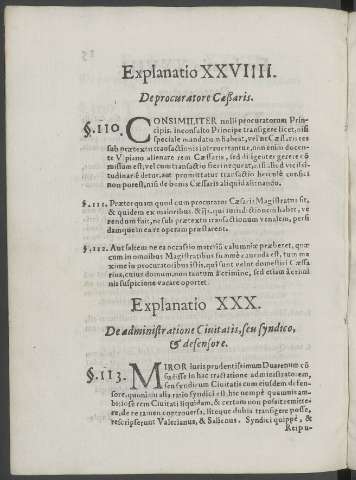 Explanatio XXVIIII.
De procuratore Cæsaris.
§. 110. CONSIMILITER nulli procuratorum Prin-
cipis, inconsulto Principe transigere licet, nisi
speciale mandatum habeat, velut Cæsaris res
sub prætextu transactionis intervertantur, non enim docen-
te Vlpiano alienare rem Cæsaris, sed diligenter gerere cō
missum est, vel cum transactio fieri nequeat,
tudinare detur, aut promittatur transactio hercule consisti
non potest, nisi de bonis Cæsaris aliquid alienando.
§. 111. Prætor quam quod cum procurator Cæsaris Magistratus sit,
& quidem ex maioribus, & ijs, qui iurisdictionem habet, ve
rendum fuit, ne sub prætextu transactionum venalem, persi
damque in ea re operam præstarent.
§. 112. Aut saltem ne ea occasio materiā calumniæ præberet, quæ
cum in omnibus Magistratibus summè cauenda est, tum ma
xime in procuratoribus istis, qui sunt velut domestici Cæsa
ris, cuius domum, non tantum à crimine, sed etiam à crimi
nis suspicione vacare oportet.
Explanatio XXX.
De administratione Ciuitatis, seu syndico,
& defensore.
§. 113. MIROR iuris prudentissimum Duarenum cō
fudisse in hac tractatione administratorem,
seu syndicum Ciuitatis cum eiusdem defen-
sore, quum in alia ratio syndici est, hic nempè quamuis am-
bitiosè rem Ciuitati liquidam, & certam non possit remitte-
re, de re tamen controuersa, liteque dubia transigere posse,
rescripserunt Valerianus, & Salienus. Syndici quippè, &
Reipu-